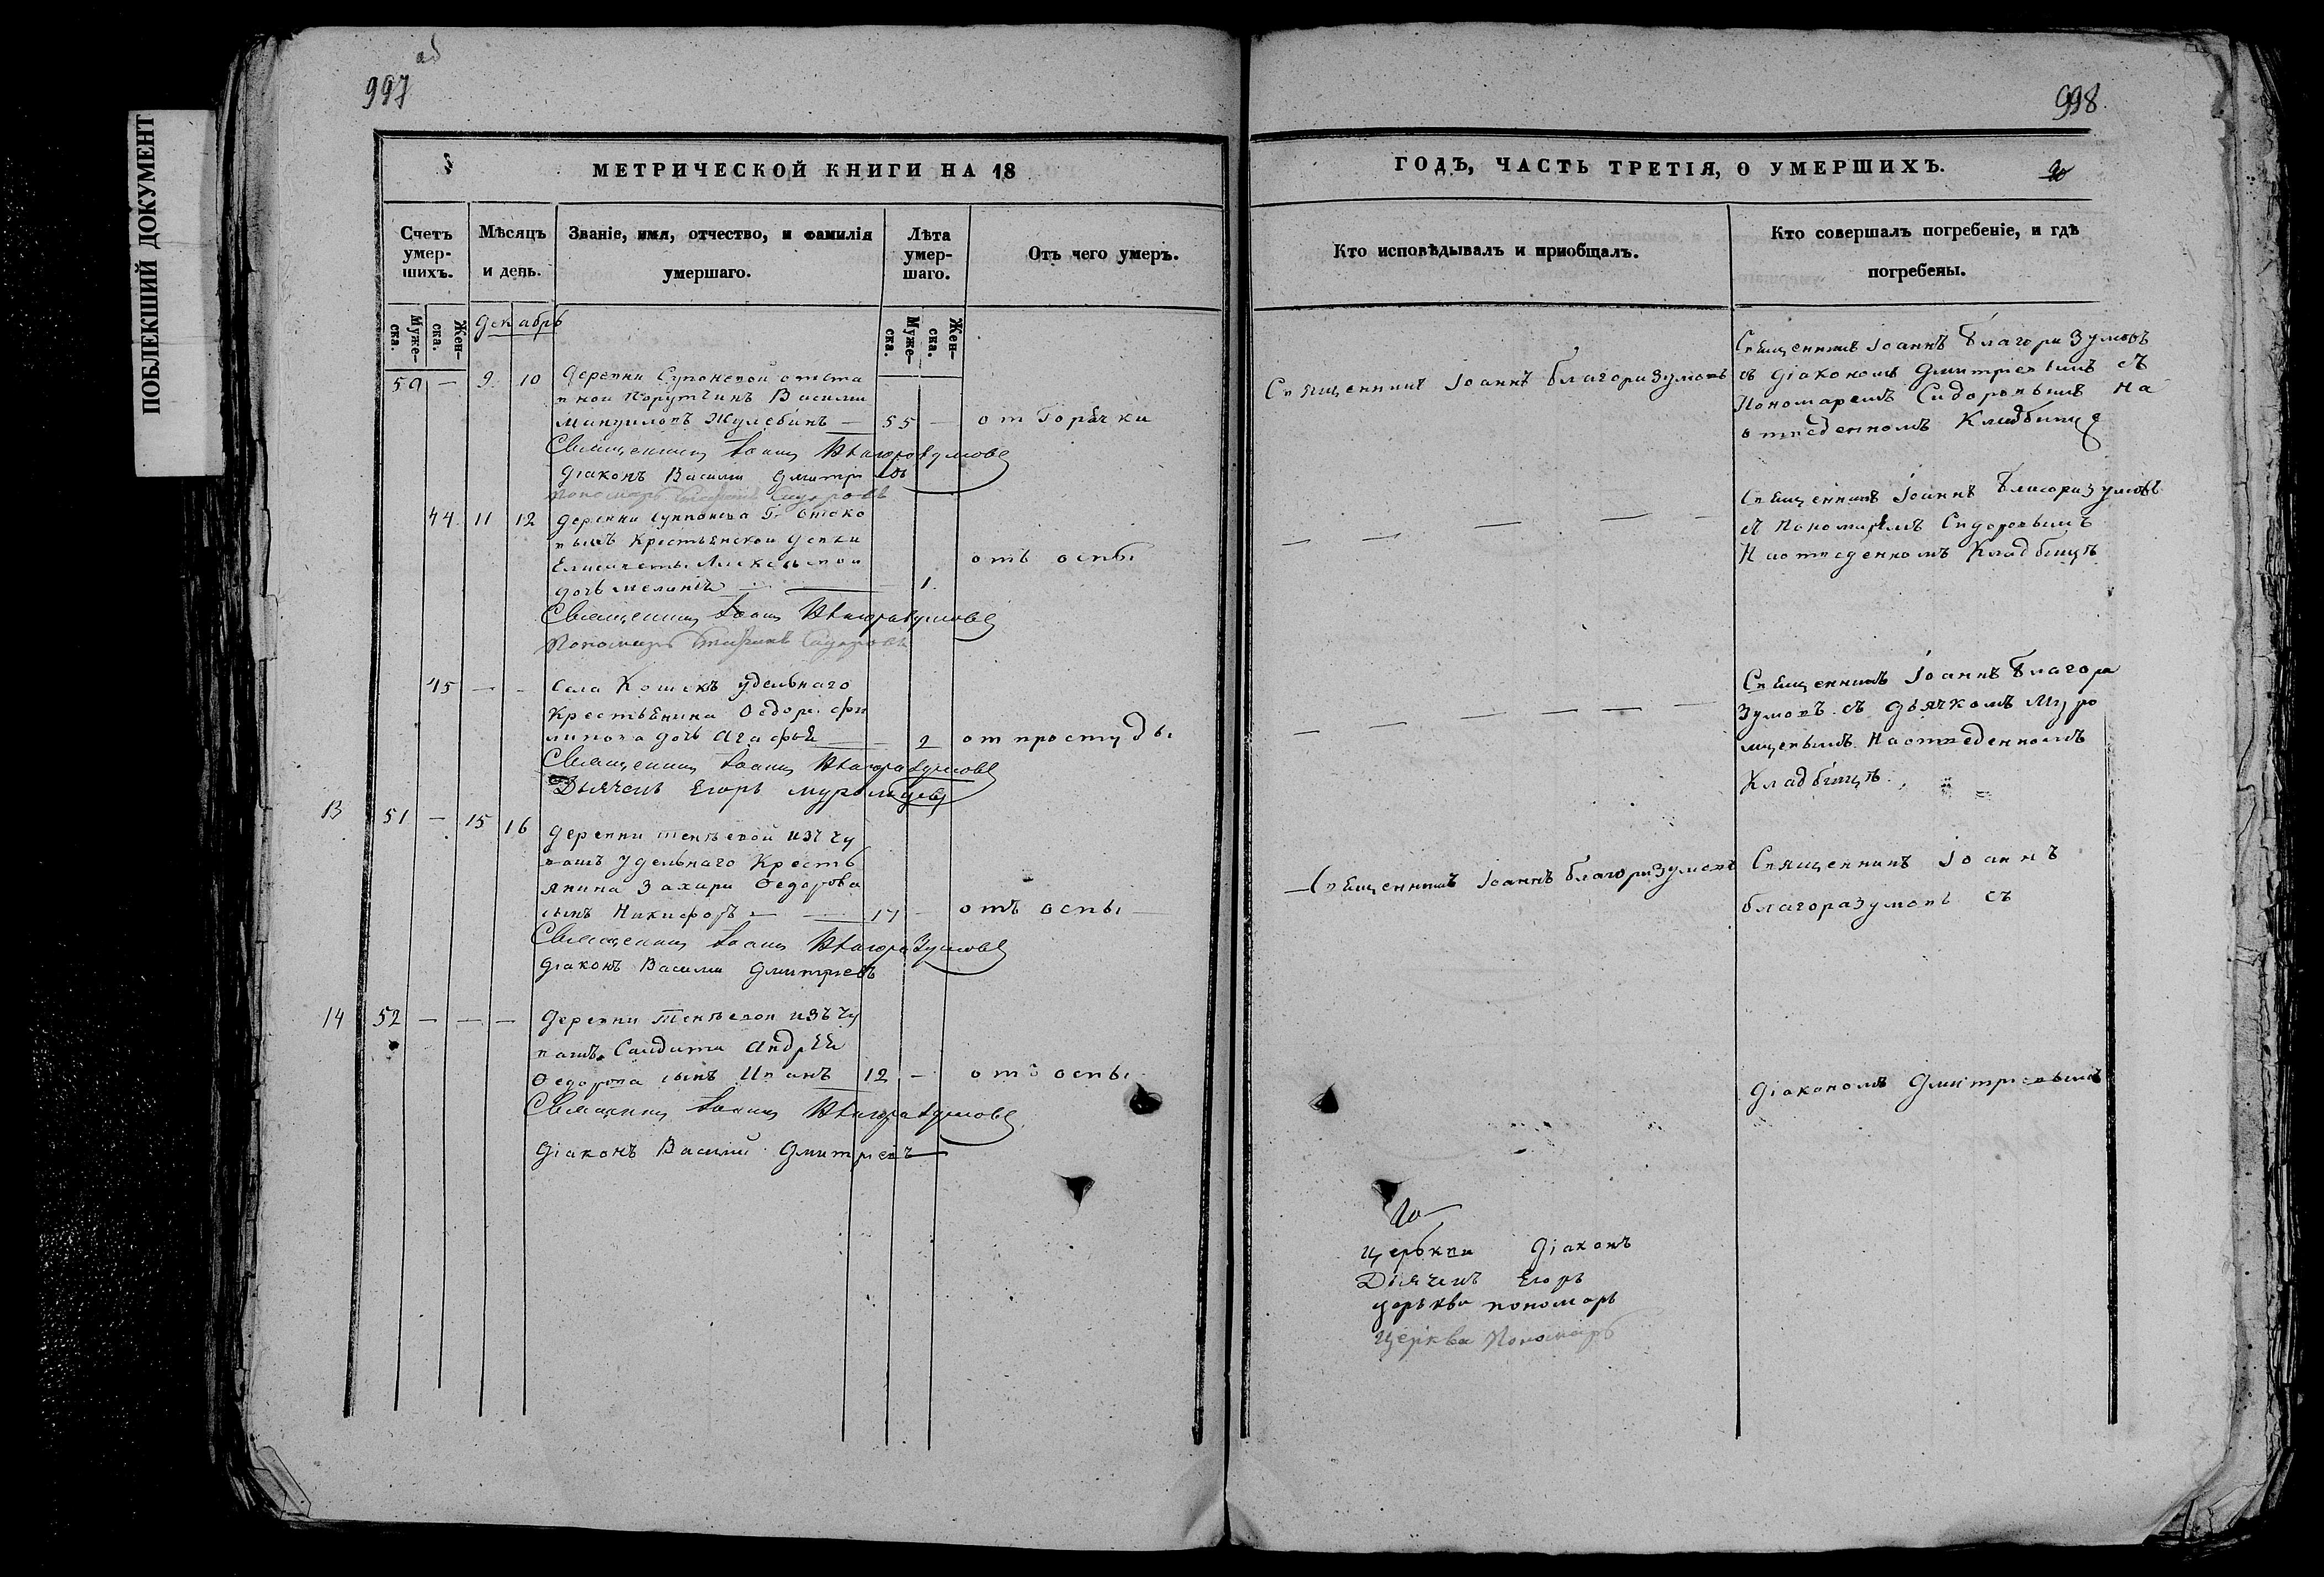 ПОБЛЕКШИЙ ДОКУМЕНТ
997
МЕТРИЧЕСКОЙ КНИГИ НА 18
Счетъ умер-шихъ.
Мѣсяцъ и день.
Званіе, имя, отчество, и фамилія умершаго.
Лѣта умер-шаго.
Отъ чего умеръ.
Муже-ска.
Жен-ска.
Муже-ска.
Жен-ска.
Декабрь
50 — 9. 10 Деревни Супоневой отста
вной Порутчикъ Васили
Жулебинъ — 55 — от Горячки
Священникъ Іоаннъ Благоразумовъ
Діаконъ Васили Дмитріевъ
Пономарь Сидоровъ
44. 11 12 Деревни
Крестьянской
Елисаветы
дочь — 1. отъ оспы
Священникъ Іоаннъ Благоразумовъ
Пономарь Сидоровъ
45 — - Села Кошекъ удельнаго
Крестьянина Федора Фи
липова дочь Агафья — 2 от простуды
Священникъ Іоаннъ Благоразумовъ
Дьячекъ Егоръ Муромцевъ
13 51 — 15 16 Деревни Тентевой изъ чу
вашъ удельнаго Кресть
янина Захара Федорова
сынъ Никифоръ — 17 — отъ оспы
Священникъ Іоаннъ Благоразумовъ
Діаконъ Васили Дмитріевъ
14 52 — — — Деревни Тентевой изъ чу
вашъ Андрея
Федорова сынъ Иванъ 12 — отъ оспы
Священникъ Іоаннъ Благоразумовъ
Діаконъ Василий Дмитріевъ
998.
ГОДЪ, ЧАСТЬ ТРЕТІЯ, О УМЕРШИХЪ.
Кто исповѣдывалъ и пріобщалъ.
Кто совершалъ погребеніе, и гдѣ погребены.
Священникъ Іоаннъ Благоразумовъ
Священникъ Іоаннъ Благоразумовъ
съ Діакономъ Дмитріевымъ съ
Пономаремъ Сидоровымъ На
отведенномъ Кладбище
Священникъ Іоаннъ Благоразумовъ
съ Пономаремъ Сидоровымъ
На отведенномъ Кладбищѣ
Священникъ Іоаннъ Благора
зумовъ съ Дьячкомъ Муро
мцевымъ На отведенномъ
Кладбищѣ.
Священникъ Іоаннъ Благоразумовъ
Священникъ Іоаннъ
Благоразумовъ съ
Діакономъ Дмитріевымъ
Церкви Діаконъ
Дьячекъ Егоръ
церкви пономарь
Церкви Пономарь